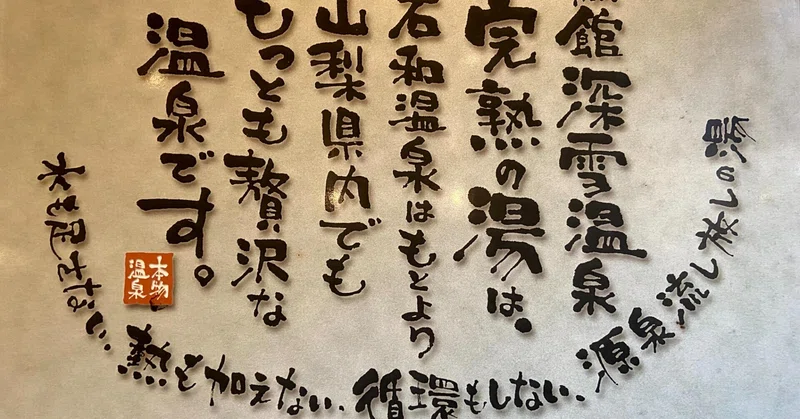 館深雪温泉
完熟の湯は、
石和温泉はもとより
山梨県内でも
もっとも贅沢な
温泉です。
本物
温泉
水も足さない、熱も加えない、循環もしない、源泉流し放しの湯